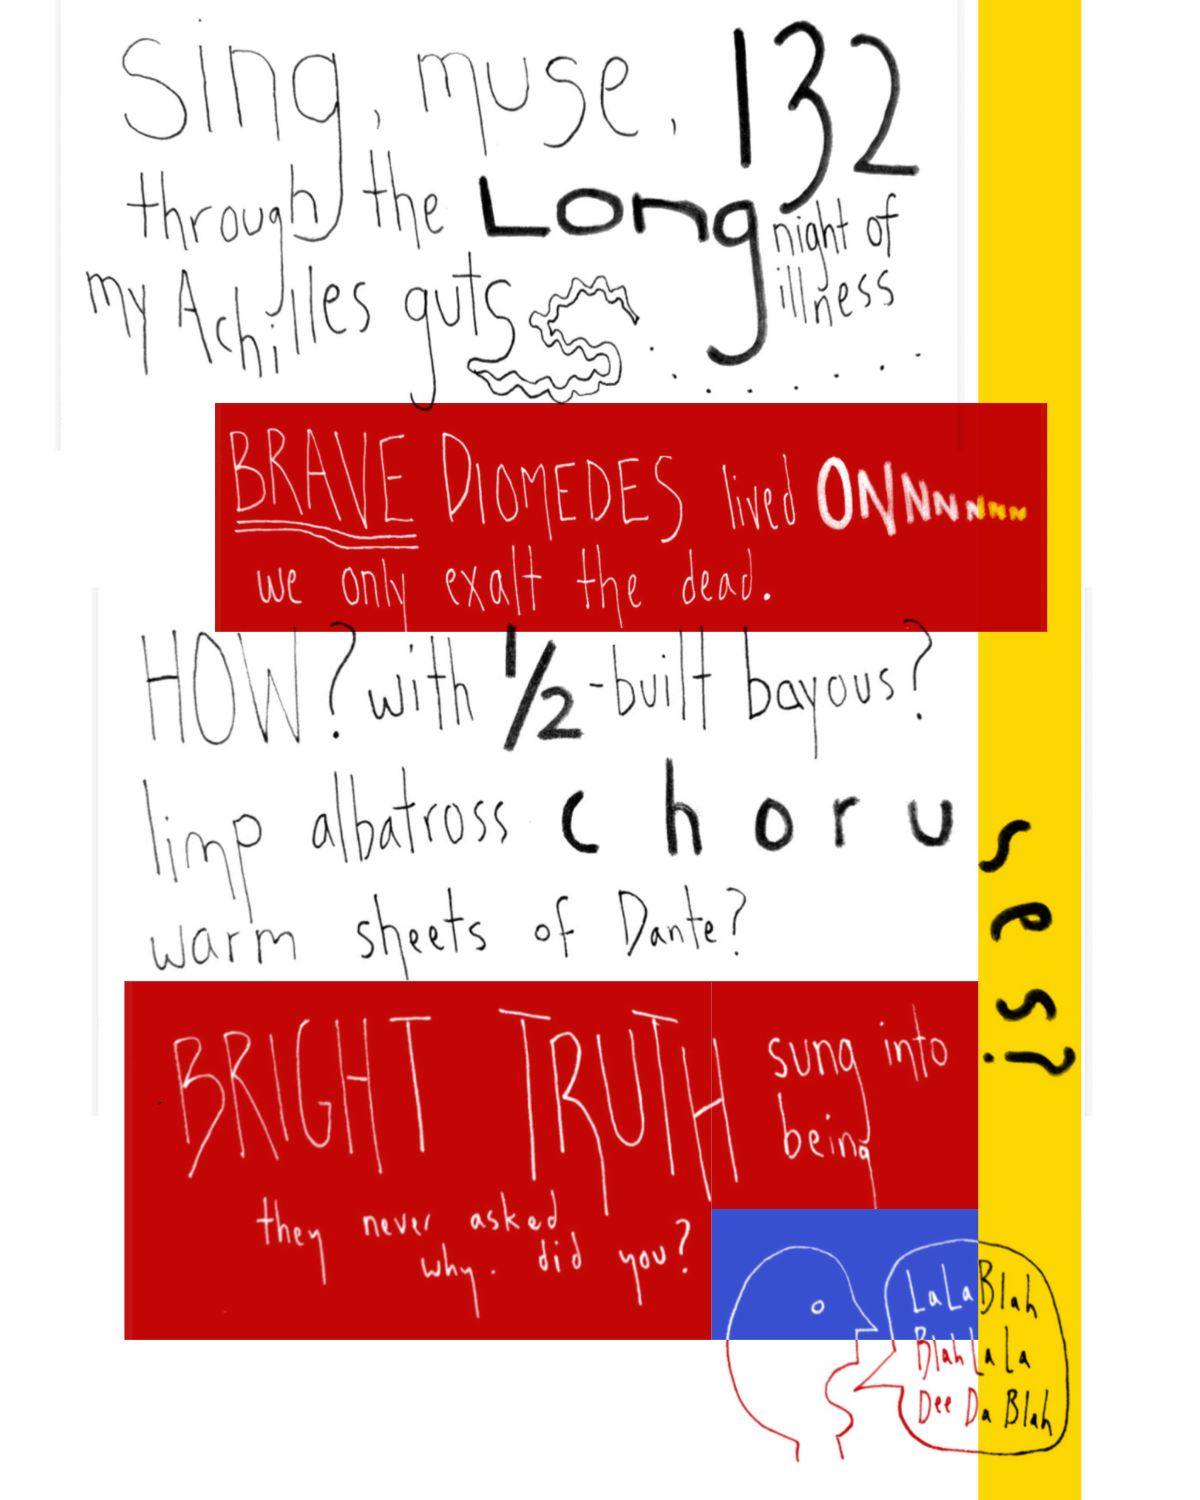 Sing, muse, 132
through the Long night of
my Achilles guts illness
BRAVE DIOMEDES lived ONNNNNNN
we only exalt the dead.
HOW? with 1/2-built bayous?
limp albatross choruses?
warm sheets of Dante?
BRIGHT TRUTH sung into
being
they never asked
why. did you?
LaLaBlah
BlahLaLa
Dee Da Blah